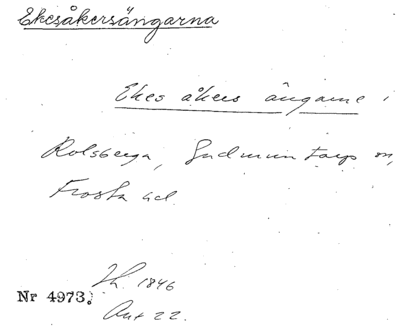 Ekesåkersängarna
Ekes åkers ängarne i
Rolsberga, Gudmuntorps sn,
Frosta hd.
Nr 4973.
Th. 1846
Akt 22.